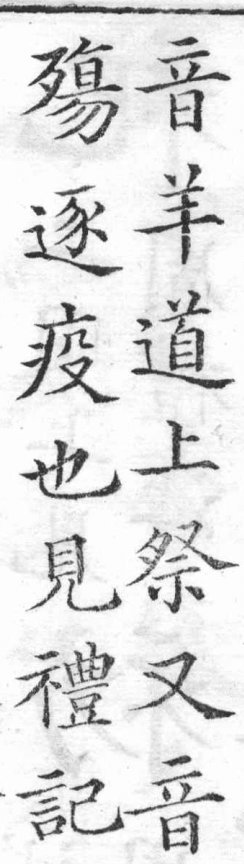 音羊道上祭又音
殤逐疫也見禮記